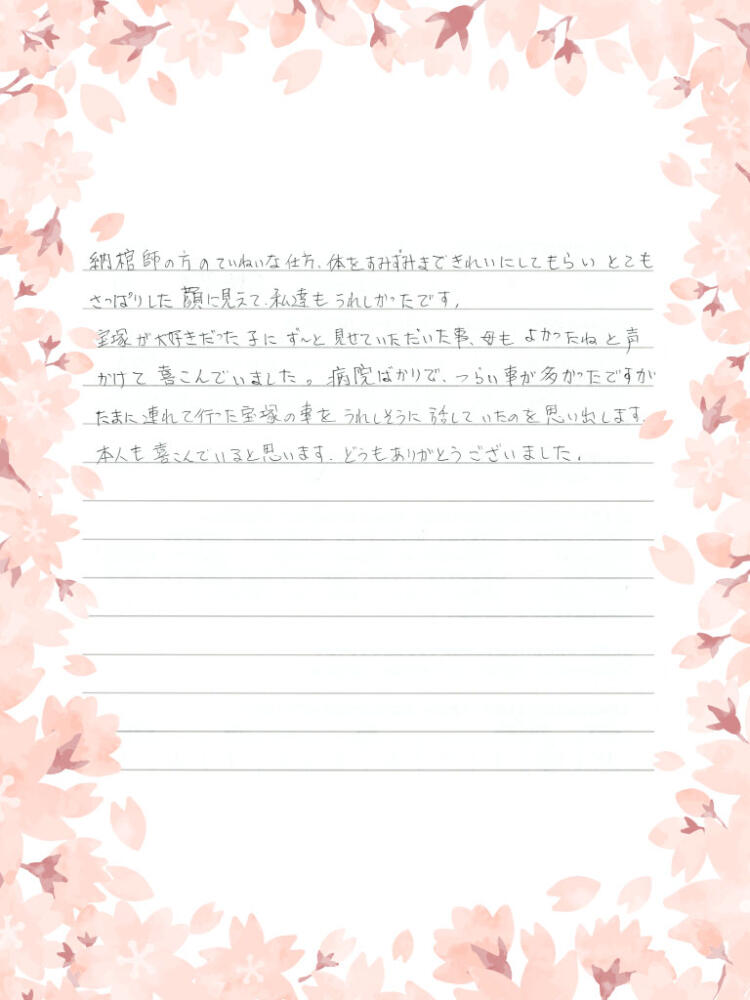 納棺師の方のていねいな仕方、体をすみずみまできれいにしてもらい とても
さっぱりした 顔に見えて、私達も うれしかったです。
宝塚が大好きだった 子に ず〜と 見せていただいた事、母も よかったねと 声
かけて 喜こんでいました。病院ばかりで、つらい事が多かったですが
たまに連れて行った宝塚の事を うれしそうに 話していたのを思い出します。
本人も 喜こんでいると思います。どうもありがとうございました。